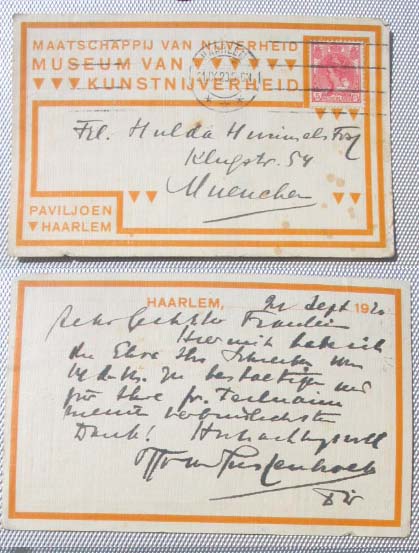 MAATSCHAPPIJ VAN NIJVERHEID
MUSEUM VAN
KUNSTNIJVERHEID
HAARLEM
Frl. Hulda
Klugstr. 54
Muenchen
PAVILJOEN
HAARLEM
HAARLEM, 21 Sept 192
Sehr Fraulein
Hiermit habe ich
die Ehre Ihr Schreiben vom
zu bestaetigen und
für Ihre fr.
meinen verbindlichsten
Dank! Hochachtungsvoll
Dir